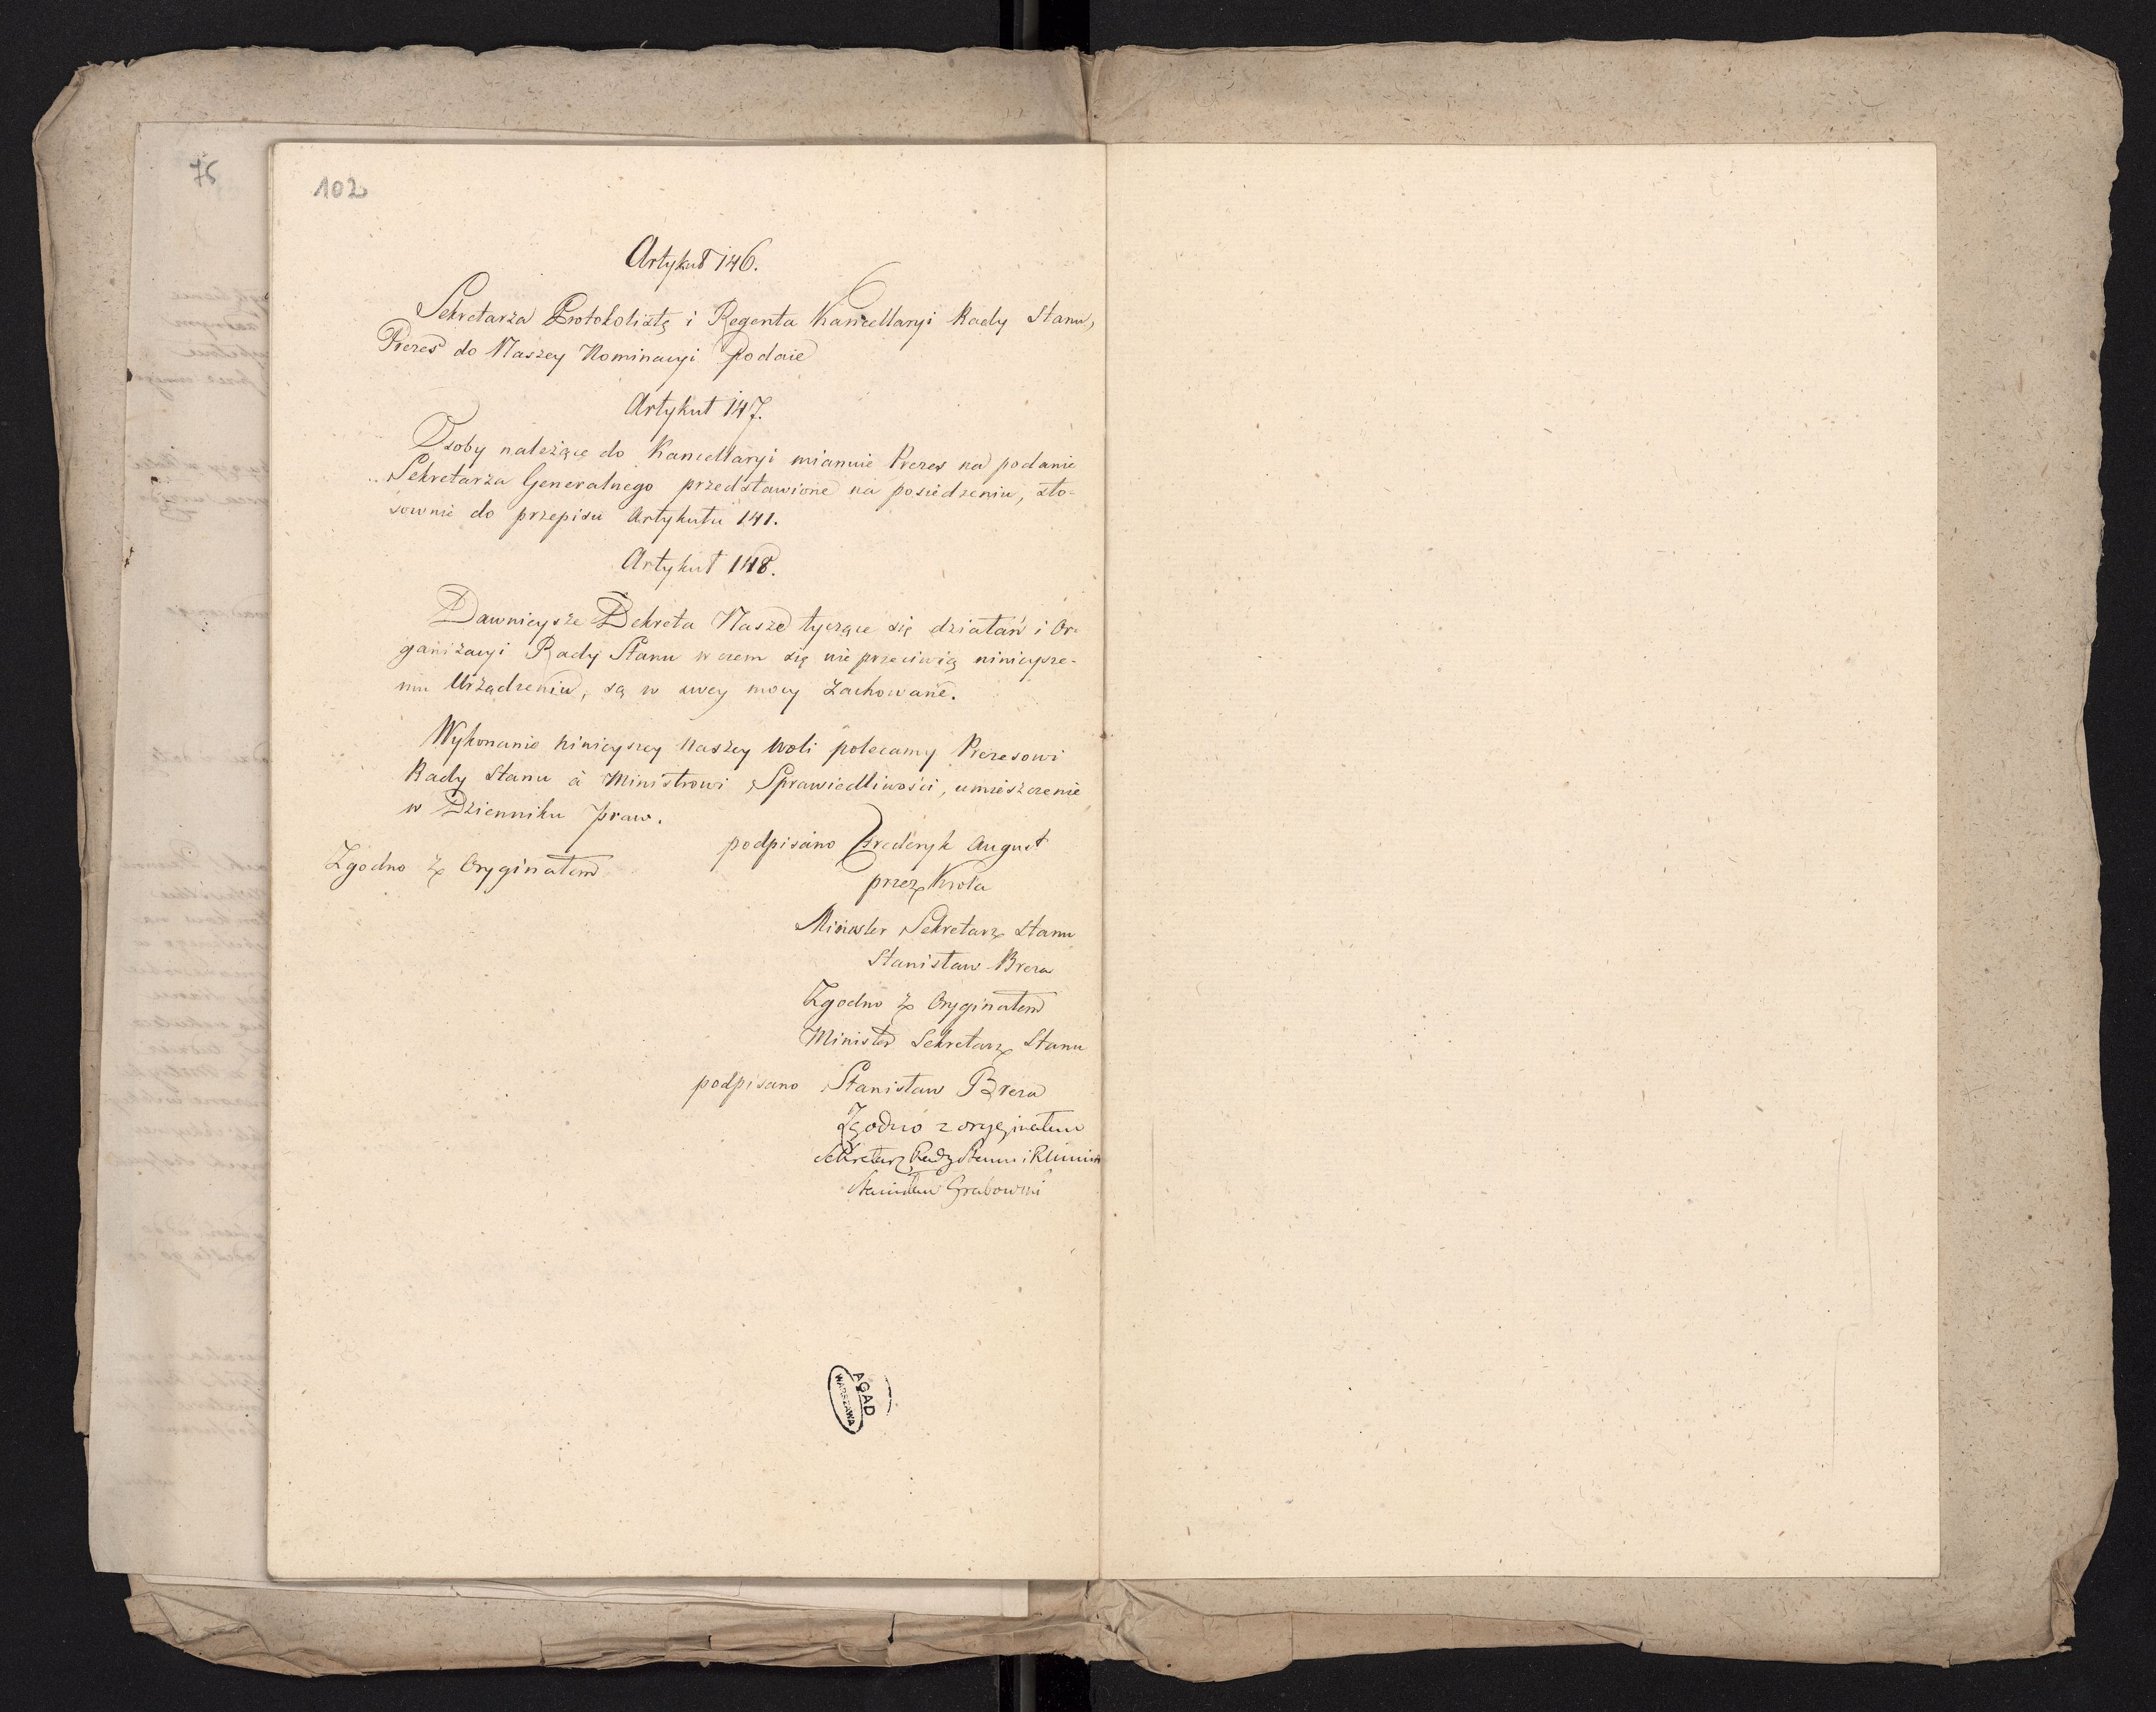 76
102
Artykuł 146.
Sekretarza Protokolistę i Regenta Kancellaryi Rady Stanu,
Prezes do Naszey Nominacyi podaie
Artykuł 147.
Osoby należące do Kancellaryi mianuie Prezes na podanie
Sekretarza Generalnego przedstawione na posiedzeniu, sto-
sownie do przepisu Artykułu 141.
Artykuł 148.
Dawnieysze Dekreta Nasze tyczące się działań i Or-
ganizacyi Rady Stanu w czem się nie przeciwią ninieysze-
mu Urządzeniu, są w swey mocy zachowane.
Wykonanie ninieyszey Naszey woli polecamy Prezesowi
Rady Stanu a Ministrowi Sprawiedliwości, umieszczenie
w Dzienniku praw.
podpisano Fryderyk August
Zgodno z Oryginałem
przez Króla
Minister Sekretarz Stanu
Stanisław Breza
Zgodno z Oryginałem
Minister Sekretarz Stanu
podpisano Stanisław Breza
Zgodno z oryginałem
Sekretarz Rady Stanu i
Stanisław Grabowski
AGAD
WARSZAWA